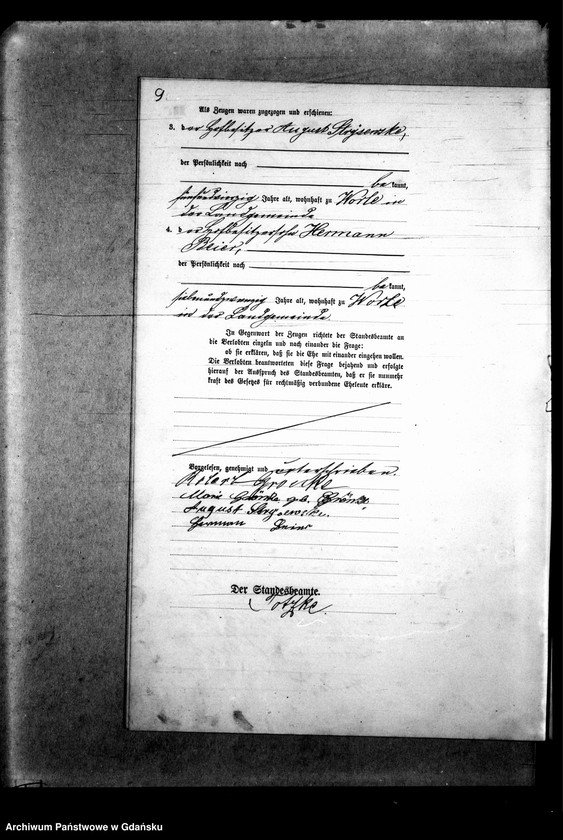 9.
Als Zeugen waren zugezogen und erschienen:
3. der Hofbesitzer August
der Persönlichkeit nach
bekannt,
Jahre alt, wohnhaft zu Worle in
der Landgemeinde
4. der Hofbesitzersohn Hermann
Beier,
der Persönlichkeit nach
bekannt,
siebenundzwanzig Jahre alt, wohnhaft zu Worle
in der Landgemeinde
In Gegenwart der Zeugen richtete der Standesbeamte an
die Verlobten einzeln und nach einander die Frage:
ob sie erklären, daß sie die Ehe mit einander eingehen wollen.
Die Verlobten beantworteten diese Frage bejahend und erfolgte
hierauf der Ausspruch des Standesbeamten, daß er sie nunmehr
kraft des Gesetzes für rechtmäßig verbundene Eheleute erkläre.
Vorgelesen, genehmigt und unterschrieben.
Robert
Marie geb.
August
Herman Beier
Der Standesbeamte.
Archiwum Państwowe w Gdańsku